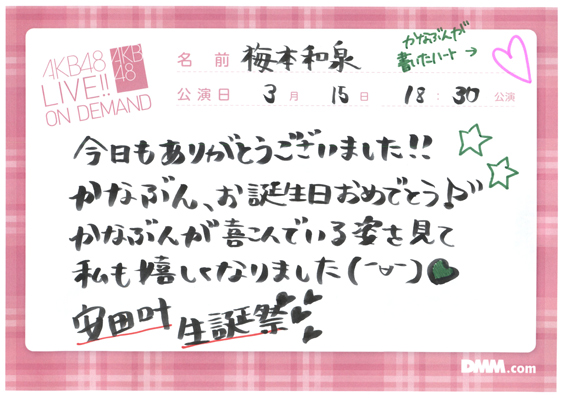 AKB48
LIVE!!
ON DEMAND
AKB
48
名前 梅本和泉
かなぶんが
書いたハート→
公演日 3月15日 18:30公演
今日もありがとうございました!!
かなぶん、お誕生日おめでとう♪
かなぶんが喜こんでいる姿を見て
私も嬉しくなりました(ˉ⌣ˉ)
安田叶 生誕祭
DMM.com